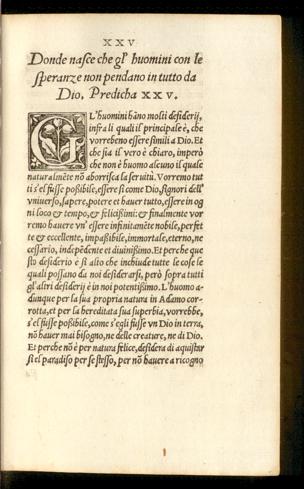 XXV
Donde nasce che gl' huomini con le
speranze non pendano in tutto da
Dio. Predicha XXV.
GL' huomini hāno molti desiderij,
infra li quali il principale è, che
vorrebeno essere simili a Dio. Et
che sia il vero è chiaro, imperò
che non è huomo alcuno il quale
naturalmēte nō aborrisca la seruitù. Vorremo tut
ti s'el fusse poßibile, essere sì come Dio, signori dell'
vniuerso, sapere, potere et hauer tutto, essere in og
ni loco & tempo, & felicißimi: & finalmente vor
remo hauere vn' essere infinitamēte nobile, perfet
to & eccellente, impaßibile, immortale, eterno, ne
cessario, indepēdente et diuinißimo. Et perche que
sto desiderio è sì alto che inchiude tutte le cose le
quali possano da noi desiderarsi, però sopra tutti
gl'altri desiderij è in noi potentißimo. L'huomo a
dunque per la sua propria natura in Adamo cor-
rotta, et per la hereditata sua superbia, vorrebbe,
s'el fusse poßibile, come s'egli fusse vn Dio in terra,
nō hauer mai bisogno, ne delle creature, ne di Dio.
Et perche nō è per natura felice, desidera di aquistar
si el paradiso per se stesso, per nō hauere a ricogno